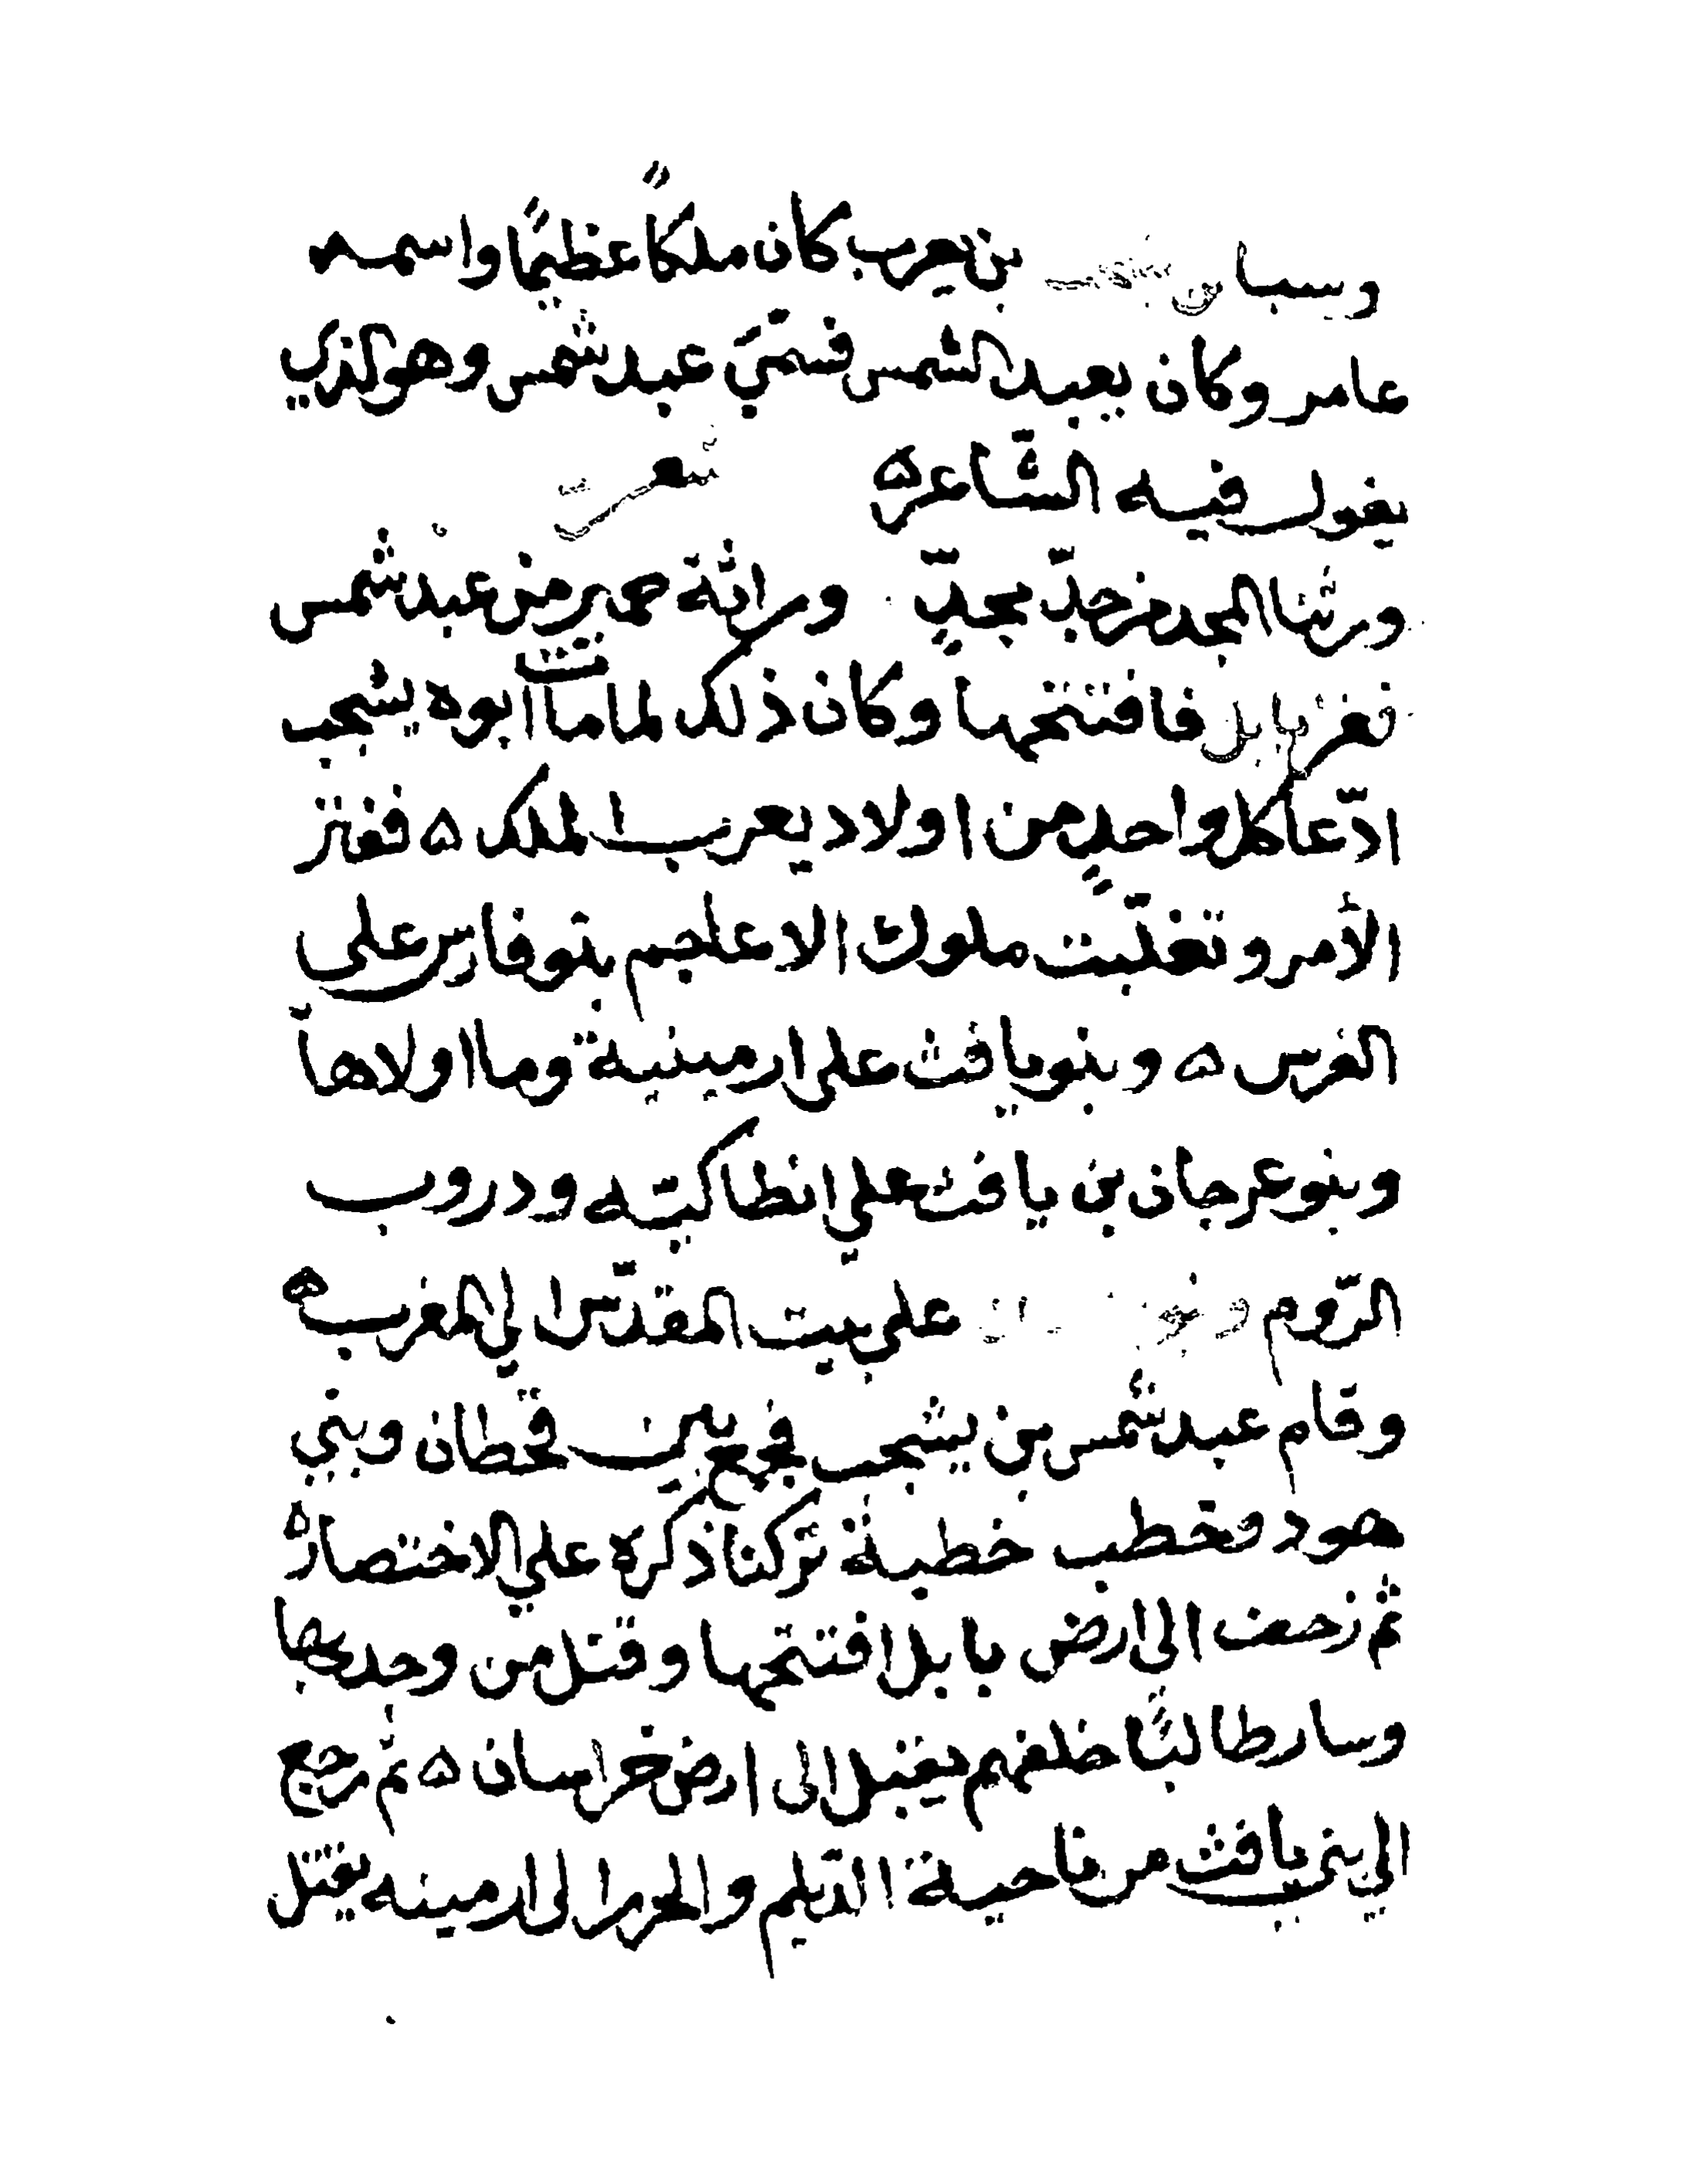 وسبا بن يعرب كان ملكاً عظيمًا واسمه
عامر وكان يعبد الشمس فسمّي عبد شمس وهو الذي
يقول فيه الشّاعر ه شعر
ورثنا المجد من جدّ مجدٍّ وراثة حمير من عبد شمس
فغزا بابل فافتتحها وكان ذلك لما مات ابوه يشجب
ادّعا كل واحدٍ من اولاد يعرب الملك ه ففتر
الأمر وتغلّبت ملوك الاعاجم بنو فارس على
الفرس ه وبنو يافث على ارمينية وما اولاها
وبنو عرجان بن يافث علي انطاكيته ودروب
الرّوم على بيت المقدّس الي المغرب ه
وقام عبد شمس بن يشجب فجمع بين قحطان وبني
هود فخطب خطبة تركنا ذكره علي الاختصار ه
ثم زحف الى ارض بابل افتتحها وقتل من وجد بها
وسار طالبًا خلفهم يقتل الى ارض خراسان ه ثم رجع
الي بني يافث من ناحية الدّيلم والحزر الى ارمينه يقتل